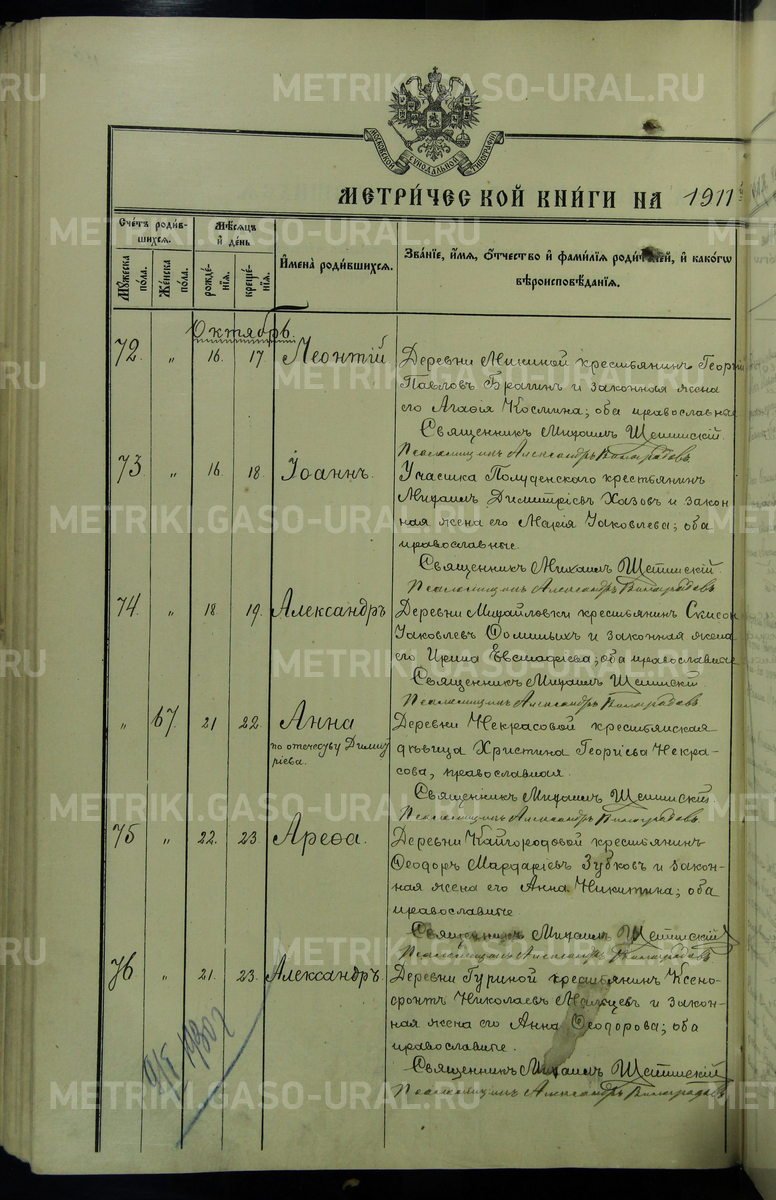 METRIKI.GASO-URAL.RU
МОСКОВСКОЙ СѴНОДАЛЬНОЙ ТИПОГРАФІИ
МЕТРИ́ЧЕСКОЙ КНИ́ГИ НА 1911
Сче́тъ роди́в-
шихся.
Мѣ́сяцъ
и҆ де́нь
Мꙋ́жеска
по́ла.
Же́нска
по́ла.
рожде́-
нїя.
креще́-
нїя.
И҆мена̀ роди́вшихся.
Зва́нїе, и҆́мя, ѻ҆́тчество и҆ фами́лїя роди́телей, и҆ како́гѡ
вѣроисповѣ́данїя.
Октябрь.
72. " 16. 17 Леонтій. Деревни Микиной крестьянинъ
Павловъ Брагинъ и законная жена
его Агафія Космина; оба православные
Священникъ Михаилъ
Псаломщикъ Александръ Виноградовъ
73 " 16 18. Іоаннъ. Участка Полуденского крестьянинъ
Михаилъ Димитріевъ Хазовъ и закон
ная жена его Марія Іаковлева; оба
православные.
Священникъ Михаилъ
Псаломщикъ Александръ Виноградовъ
74 " 18 19. Александръ Деревни Михайловки крестьянинъ
Іаковлевъ Фоминыхъ и законная жена
его Ирина Евстафіева; оба православные
Священникъ Михаилъ
Псаломщикъ Александръ Виноградовъ
" 67. 21 22. Анна Деревни Некрасовой крестьянская
по отечеству Димит
ріева.
дѣвица Христина Георгіева Некра-
сова, православная.
Священникъ Михаилъ
Псаломщикъ Александръ Виноградовъ
75 " 22. 23. Арефа. Деревни Кайгородовой крестьянинъ
Ѳеодоръ Мардаріевъ Зубковъ и закон-
ная жена его Анна Никитина; оба
православные
Священникъ Михаилъ
Псаломщикъ Александръ Виноградовъ
76 " 21. 23. Александръ. Деревни Гуриной крестьянинъ Ксено-
фонтъ Николаевъ Мальцевъ и закон-
ная жена его Анна Ѳеодорова; оба
православные.
Священникъ Михаилъ
Псаломщикъ Александръ Виноградовъ